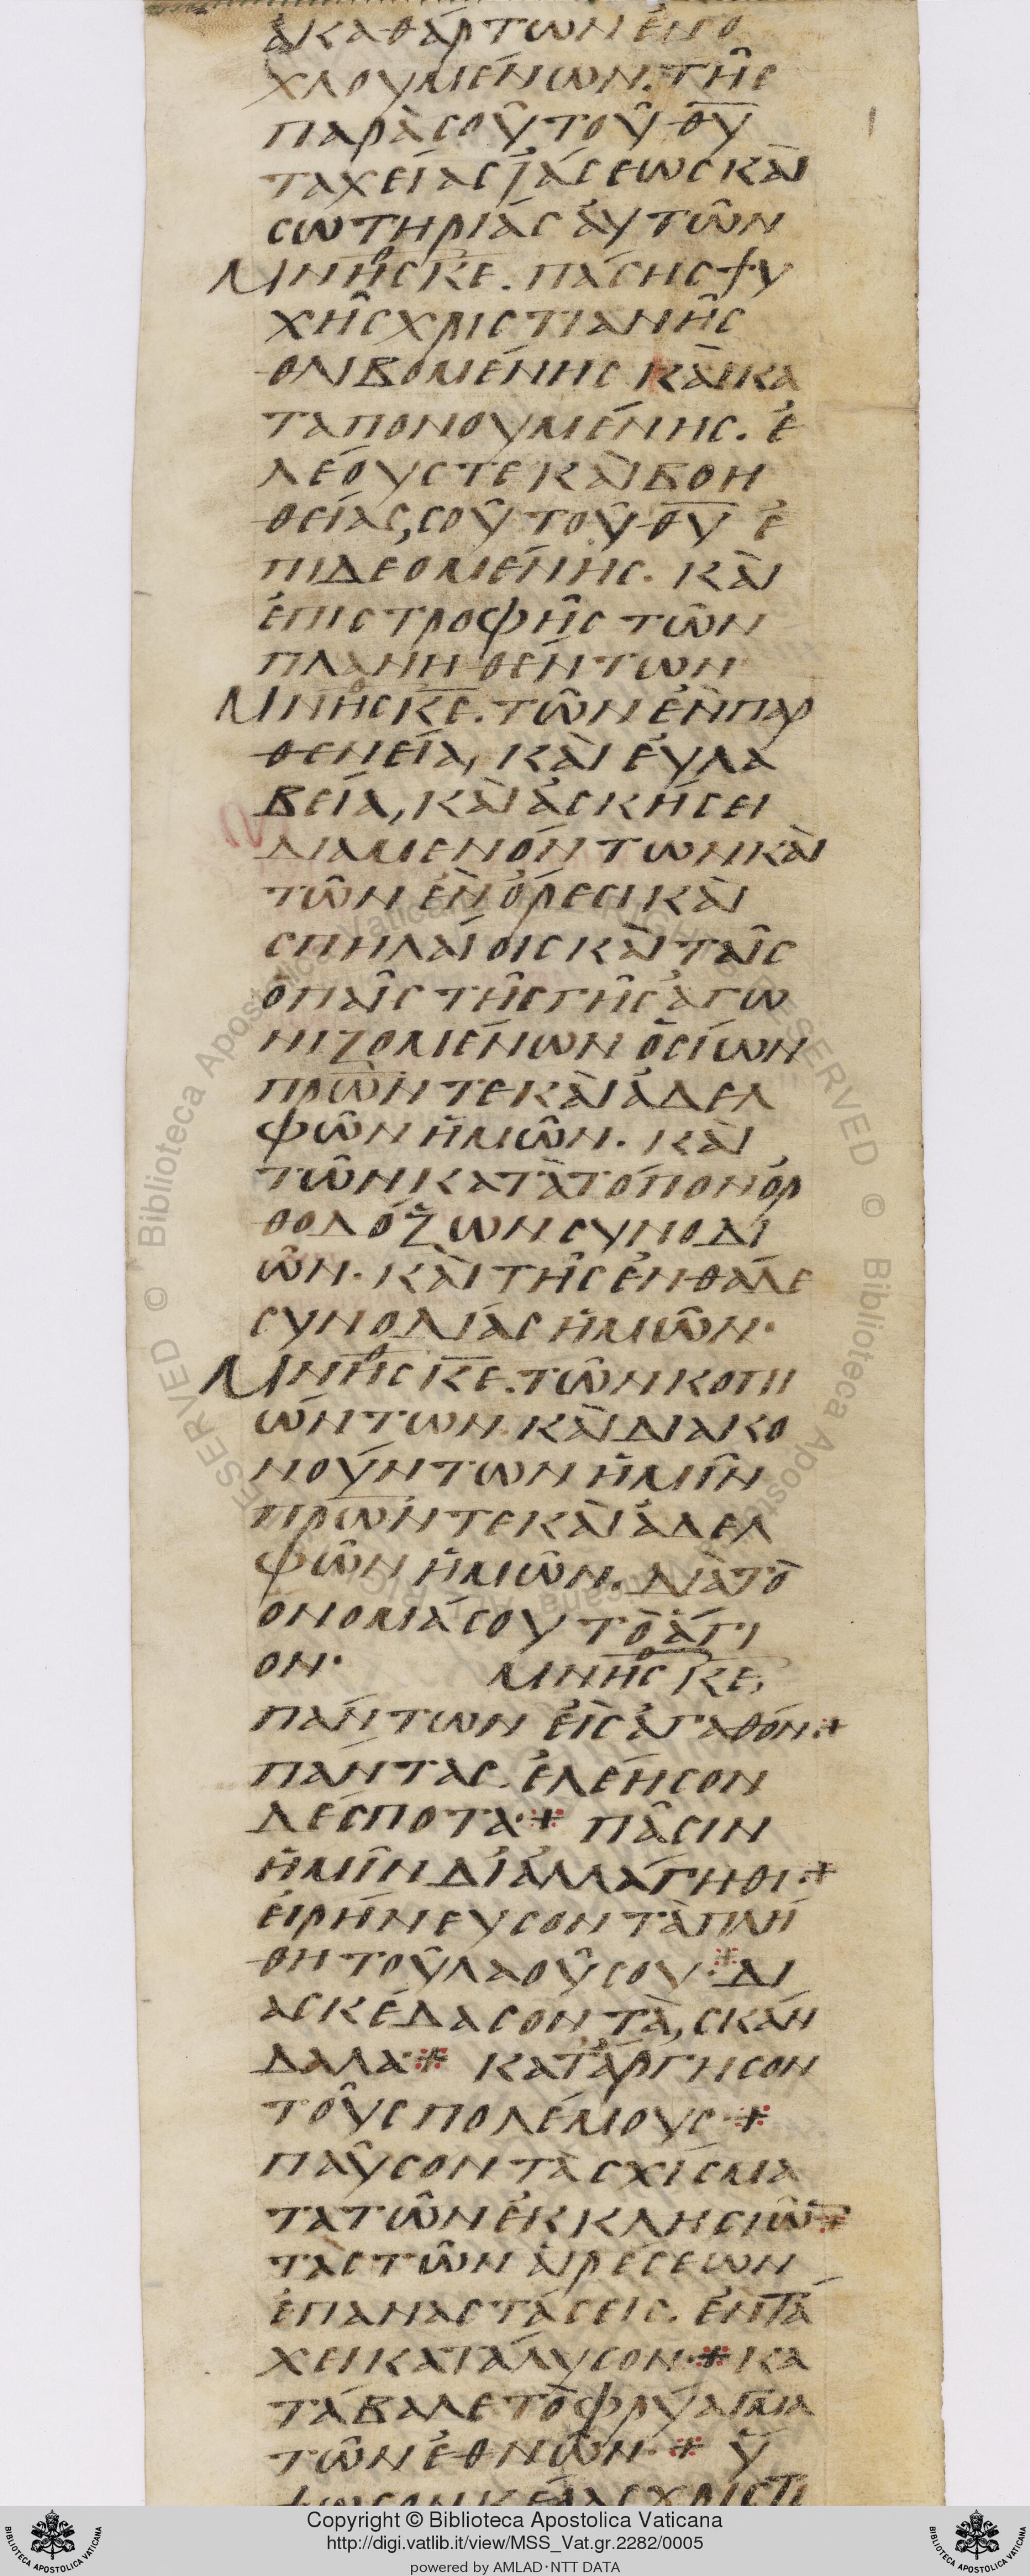 ἀκαθάρτων ἐνο
χλουμένων. τῆς
παρὰ σοῦ τοῦ θυ
ταχείας ἰάσεως καὶ
σωτηρίας αὐτῶν
Μνήσθ κε. πάσης ψυ
χῆς χριστιανῆς
θλιβομένης καὶ κα
ταπονουμένης. ἐ
λέους τε καὶ βοη
θείας, σοῦ τοῦ θυ ἐ
πιδεομένης. καὶ
ἐπιστροφῆς τῶν
πλανηθέντων
Μνήσθ κε. τῶν ἐν παρ
θενεία, καὶ εὐλα
βεία, καὶ ἀσκήσει
διαμενόντων καὶ
τῶν ἐν ὄρεσι καὶ
σπηλαίοις καὶ ταῖς
ὀπαῖς τῆς γῆς ἀγω
νιζομένων ὁσίων
πρων τε καὶ ἀδελ
φῶν ἡμῶν. καὶ
τῶν κατὰ τόπον ὀρ
θοδόξων συνοδι
ῶν. καὶ τῆς ἐνθάδε
συνοδίας ἡμῶν.
Μνήσθ κε. τῶν κοπι
ώντων καὶ διακο
νούντων ἡμῖν
πρων τε καὶ ἀδελ
φῶν ἡμῶν. διὰ τὸ
ὄνομά σου τὸ ἅγι
ον. Μνήσθ κε,
πάντων εἰς ἀγαθόν·+
πάντας ἐλέησον
δέσποτα·+ πᾶσιν
ἡμῖν διαλλάγηθι·+
εἰρήνευσον τὰ πλή
θη τοῦ λαοῦ σου·+ δι
ασκέδασον τὰ, σκάν
δαλα·+ κατάργησον
τοὺς πολέμους·+
παῦσον τὰ σχίσμα
τα τῶν ἐκκλησιῶ+
τὰς τῶν αἱρέσεων
ἐπαναστάσεις. ἐν τά
χει κατάλυσον·+ κα
τάβαλε τὸ φρύαγμα
τῶν ἐθνῶν·+ ὕ
ψωσον κέρας χριστι
Copyright © Biblioteca Apostolica Vaticana
http://digi.vatlib.it/view/MSS_Vat.gr.2282/0005
powered by AMLAD·NTT DATA